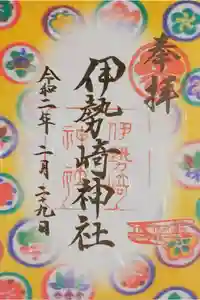 奉拝
伊勢崎神社
令和二年二月二十九日